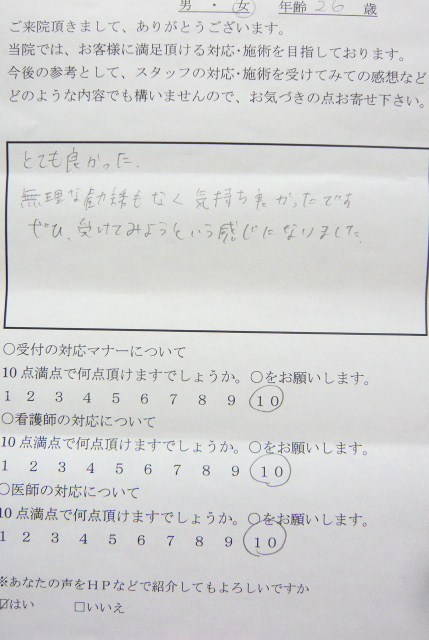 男 ・ 女 年齢 26 歳
ご来院頂きまして、ありがとうございます。
当院では、お客様に満足頂ける対応・施術を目指しております。
今後の参考として、スタッフの対応・施術を受けてみての感想など
どのような内容でも構いませんので、お気づきの点お寄せ下さい。
とても良かった.
無理な勧誘もなく気持ち良かったです
ぜひ、受けてみようという感じになりました.
○受付の対応マナーについて
10点満点で何点頂けますでしょうか。○をお願いします。
1 2 3 4 5 6 7 8 9 10
○看護師の対応について
10点満点で何点頂けますでしょうか。○をお願いします。
1 2 3 4 5 6 7 8 9 10
○医師の対応について
10点満点で何点頂けますでしょうか。○をお願いします。
1 2 3 4 5 6 7 8 9 10
※あなたの声をＨＰなどで紹介してもよろしいですか
☑はい □いいえ